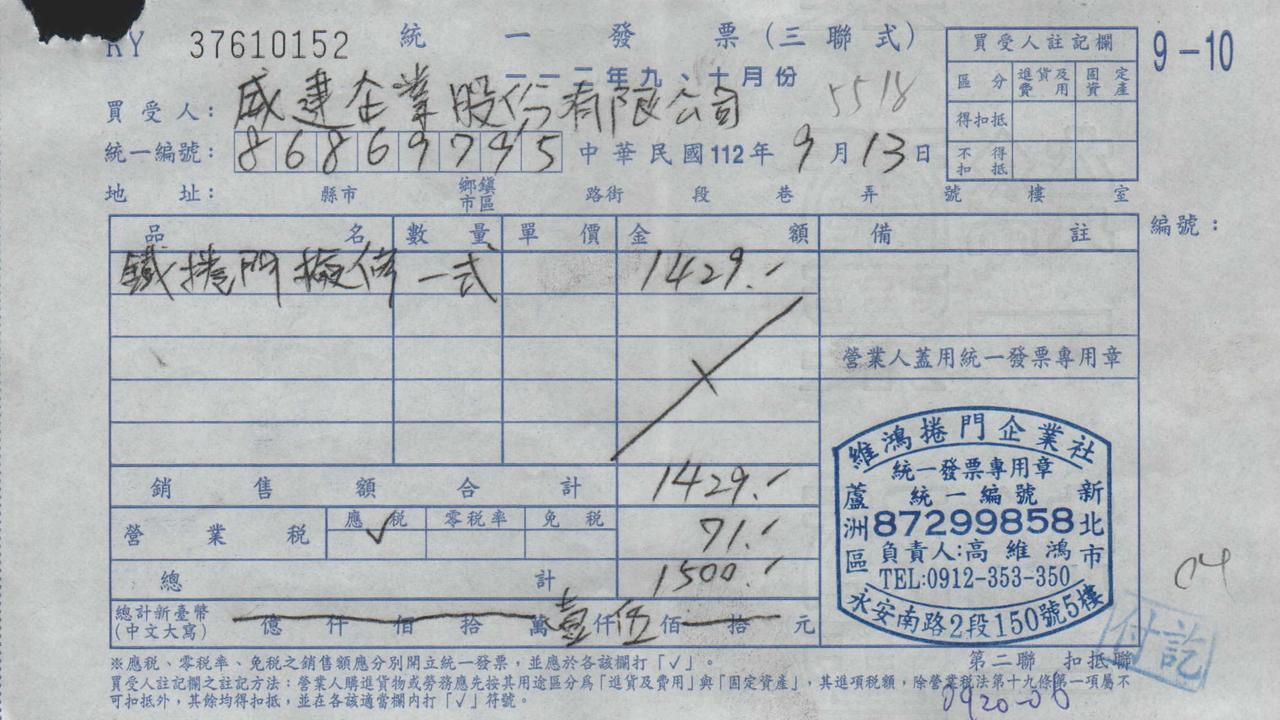 RY 37610152 統一發票(三聯式)
9-10
一一二年九、十月份
買受人註記欄
區分 進貨及費用 固定資產
得扣抵
不得扣抵
買受人: 威達企業股份有限公司 5518
統一編號: 86869745 中華民國112年9月13日
地址: 縣市 鄉鎮市區 路街 段 巷 弄 號 樓 室
品名 數量 單價 金額 備註 編號:
鐵捲門 一式 1429.-
營業人蓋用統一發票專用章
銷售額合計 1429.-
營業稅 應稅 ✓ 零稅率 免稅 71.-
總計 1500.-
總計新臺幣(中文大寫) 億仟佰拾萬壹仟伍佰拾元
維鴻捲門企業社
統一發票專用章
統一編號
87299858
負責人:高維鴻
TEL:0912-353-350
新北市
蘆洲區
永安南路2段150號5樓
04
付訖
※應稅、零稅率、免稅之銷售額應分別開立統一發票,並應於各該欄打「✓」。
第二聯 扣抵聯
買受人註記欄之註記方法:營業人購進貨物或勞務應先按其用途區分為「進貨及費用」與「固定資產」,其進項稅額,除營業稅法第十九條第一項屬不
可扣抵外,其餘均得扣抵,並在各該適當欄內打「✓」符號。
0920-06